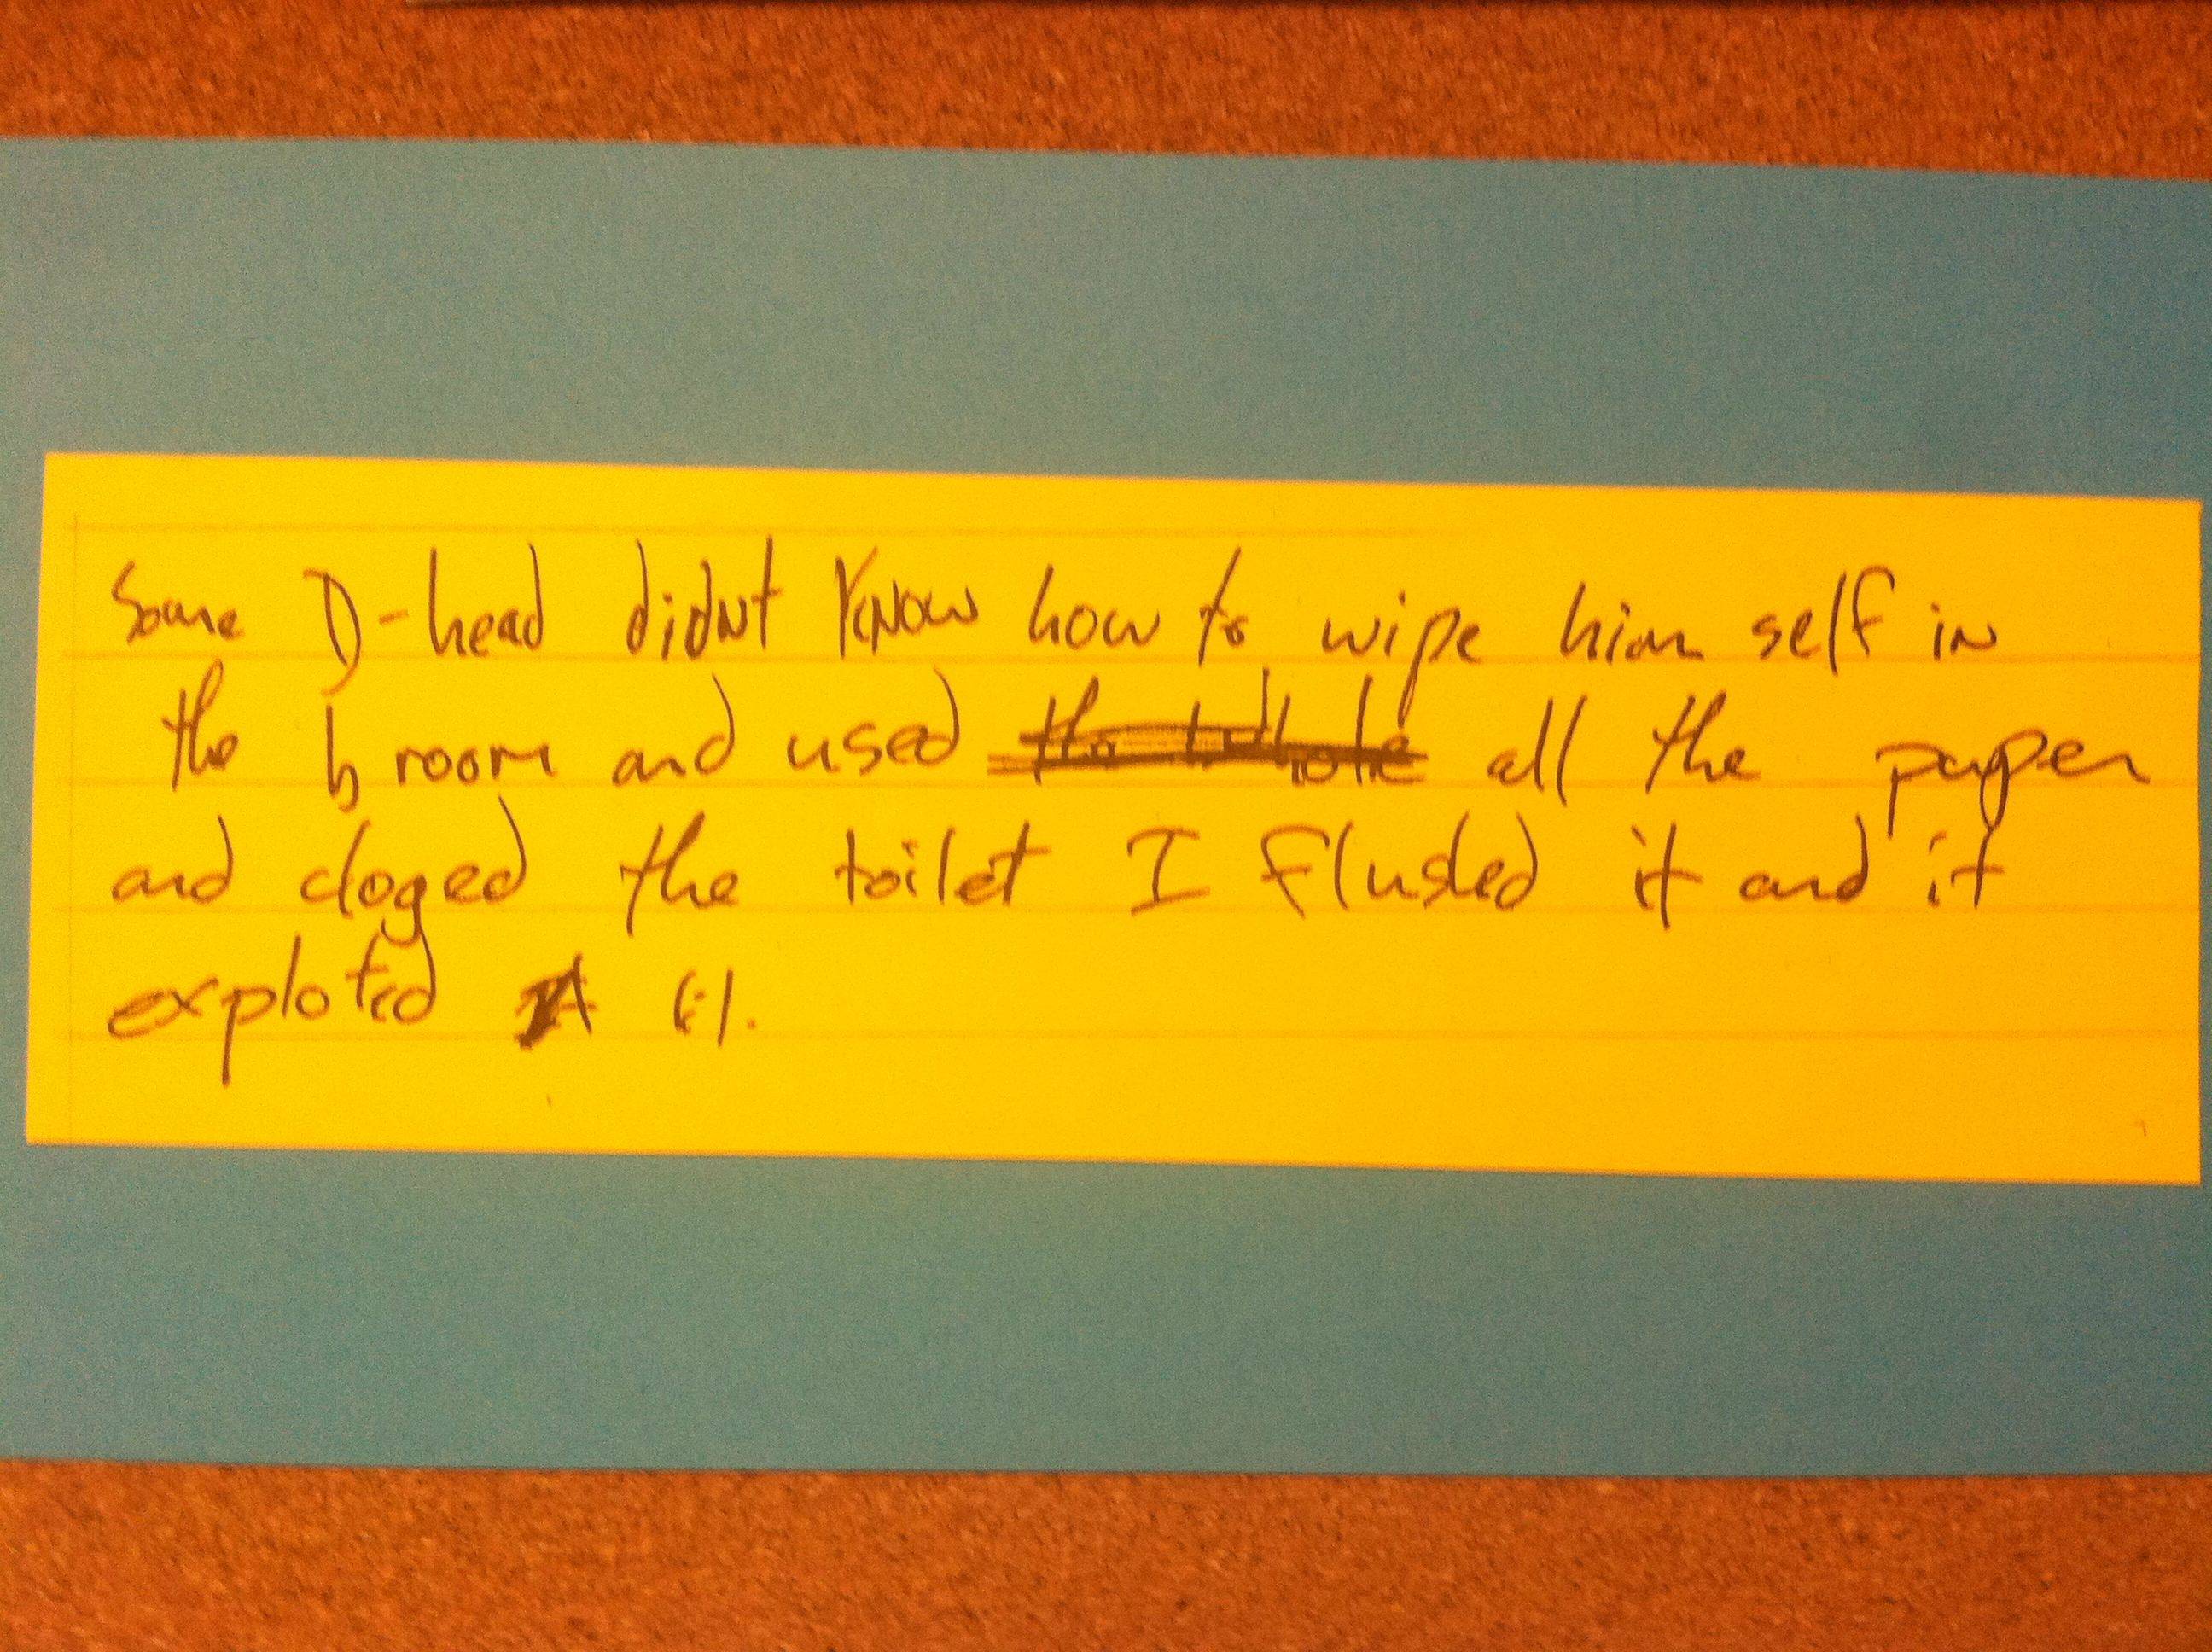 Some D-head didnt Know how to wipe him self in
the b room and used the whole all the paper
and cloged the toilet I flushed it and it
exploted